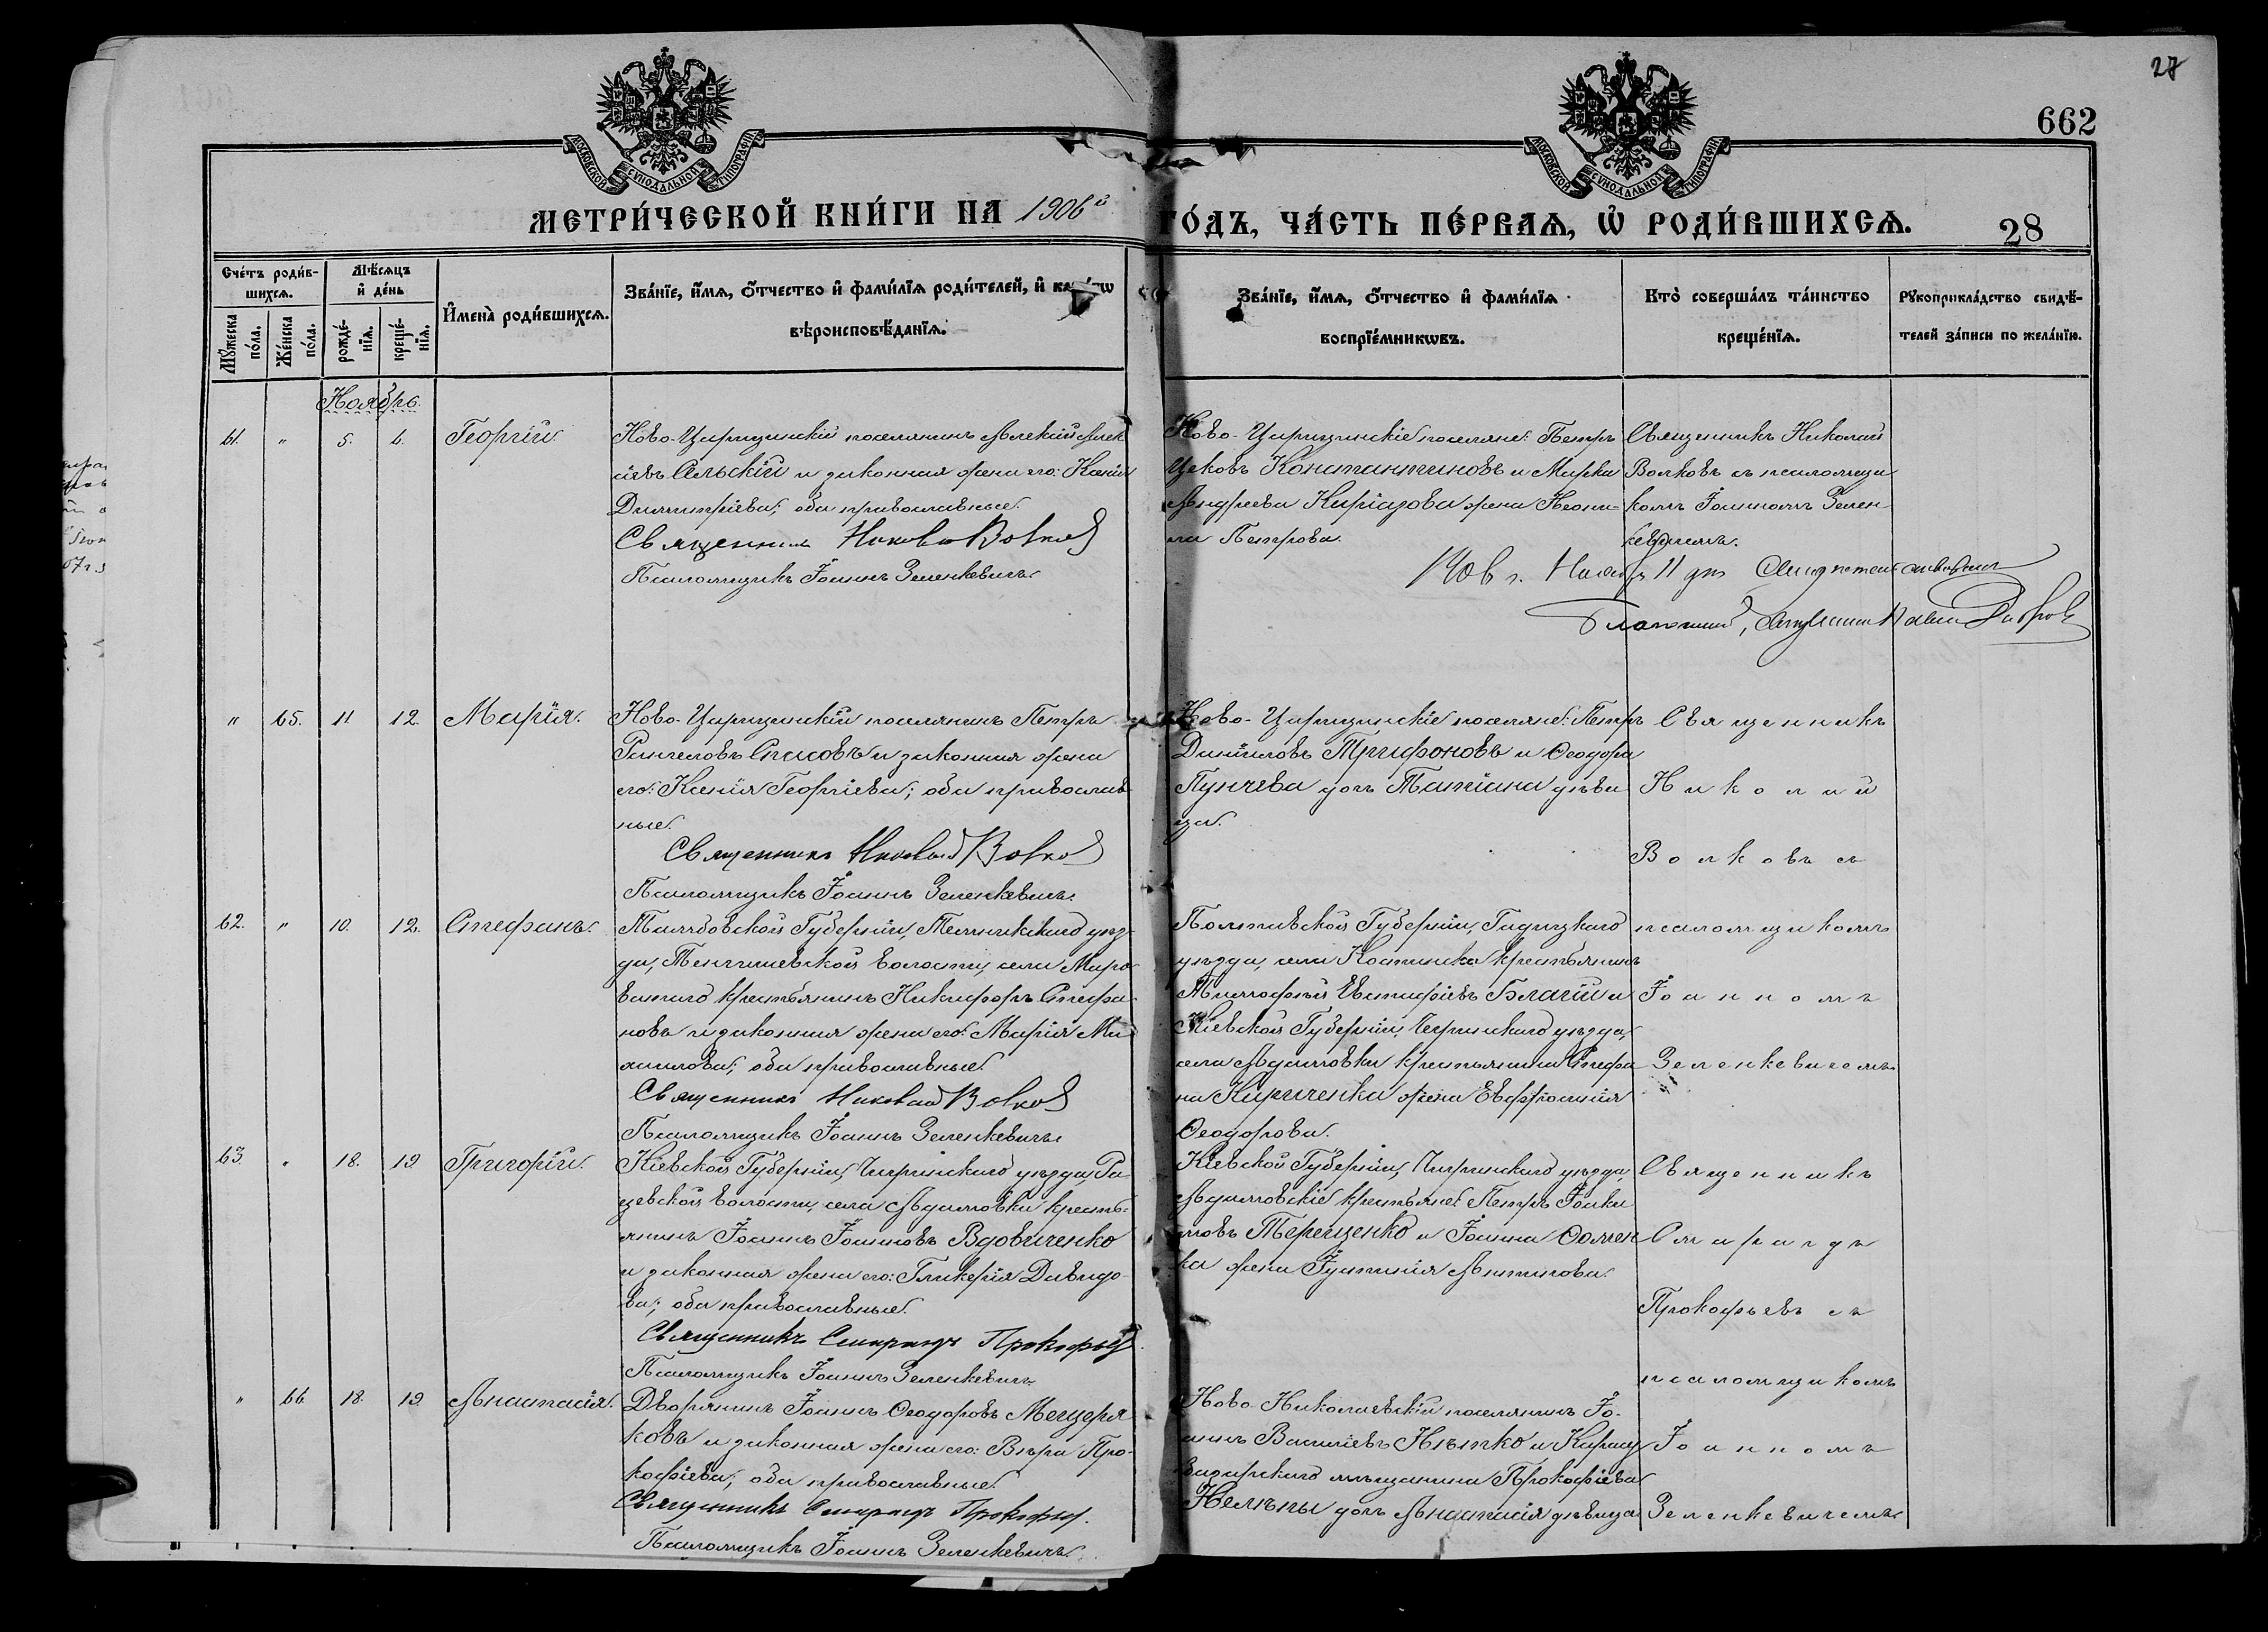 27
662
МОСКОВСКОЙ СѴНОДАЛЬНОЙ ТИПОГРАФІИ
МОСКОВСКОЙ СѴНОДАЛЬНОЙ ТИПОГРАФІИ
МЕТРИ́ЧЕСКОЙ КНИ́ГИ НА 1906й ГО́ДЪ, ЧА́СТЬ ПЕ́РВАѦ, Ѡ҆ РОДИ́ВШИХСѦ.
28
Сче́тъ роди́в-
шихсѧ.
Мꙋ́жеска по́ла.
Же́нска по́ла.
Мѣ́сѧцъ
и҆ де́нь
рожде́-
нїѧ.
креще́-
нїѧ.
И҆мена̀ роди́вшихсѧ.
Зва́нїе, и҆́мѧ, ѻ҆́тчество и҆ фами́лїѧ роди́телей, и҆
вѣроисповѣ́данїѧ.
Зва́нїе, и҆́мѧ, ѻ҆́тчество и҆ фами́лїѧ
воспрїе́мникѡвъ.
Кто̀ соверша́лъ та́инство
креще́нїѧ.
Рꙋкоприкла́дство свидѣ́-
телей за́писи по жела́нїю.
Ноябрь.
61. " 5. 6. Георгій.
Ново-Царицинскій поселянинъ Алексій Алек
сіевъ Сельскій и законная жена его: Ксенія
Димитріева; оба православные.
Священникъ Николай Волковъ
Псаломщикъ Іоаннъ Зеленкевичъ.
Ново-Царицинскіе поселяне: Петръ
Цековъ Константиновъ и Марка
Андреева Киріазова жена Неони-
ла Петрова.
Священникъ Николай
Волковъ съ псаломщи
комъ Іоанномъ Зелен
кевичемъ.
1906 г. Ноября 11 дня
Благочинный, Священникъ
" 65. 11 12. Марія.
Ново-Царицинскій поселянинъ Петръ
Рангеловъ Спасовъ и законная жена
его: Ксенія Георгіева; оба православ-
ные.
Священникъ Николай Волковъ
Псаломщикъ Іоаннъ Зеленкевичъ.
Ново-Царицинскіе поселяне: Петръ
Даниловъ Трифоновъ и Ѳеодора
Пунчева дочь Татіана дѣви
ца.
Священникъ
Николай
Волковъ съ
псаломщикомъ
Іоанномъ
Зеленкевичемъ
62. " 10. 12. Стефанъ.
Тамбовской Губерніи, Темниковскаго уѣз-
да, волости, села
крестьянинъ Никифоръ Стефа-
новъ и законная жена его: Марія Ми-
хаилова; оба православные.
Священникъ Николай Волковъ
Псаломщикъ Іоаннъ Зеленкевичъ
Полтавской Губерніи, Гадячскаго
уѣзда, села крестьянинъ
Тимофей Евстафіевъ Благій и
Кіевской Губерніи, Чигринскаго уѣзда,
села Адамовки крестьянина Стефа
на Кириченка жена Евфросинія
Ѳеодорова.
63. " 18. 19. Григорій.
Кіевской Губерніи, Чигринскаго уѣзда, Ра-
цевской волости, села Адамовки кресть-
янинъ Іоаннъ Іоанновъ Вдовиченко
и законная жена его: Гликерія Давидо-
ва; оба православные.
Священникъ Смарагдъ Прокофьевъ.
Псаломщикъ Іоаннъ Зеленкевичъ
Кіевской Губерніи, Чигринскаго уѣзда,
Адамовскіе крестьяне: Петръ Іоаки
мовъ Терещенко и Іоанна Ѳомен
ка жена Іустинія Антипова.
Священникъ
Смарагдъ
Прокофьевъ съ
псаломщикомъ
Іоанномъ
Зеленкевичемъ
" 66. 18. 19. Анастасія.
Дворянинъ Іоаннъ Ѳеодоровъ Мещеря
ковъ и законная жена его: Вѣра Про-
кофіева; оба православные.
Священникъ Смарагдъ Прокофьевъ.
Псаломщикъ Іоаннъ Зеленкевичъ.
Ново-Николаевскій поселянинъ Іо-
аннъ Василіевъ Нѣтко и Карасу
базарскаго мѣщанина Прокофіева
Нелѣпы дочь Анастасія дѣвица